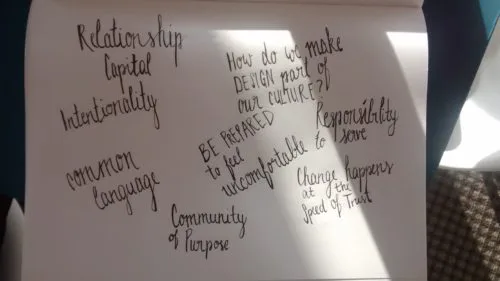 Relationship
Capital
Intentionality
How do we make
DESIGN part of
our CULTURE?
BE PREPARED
to feel
uncomfortable
Responsibility
to serve
common
language
Change happens
at the
Speed of Trust
Community
of Purpose